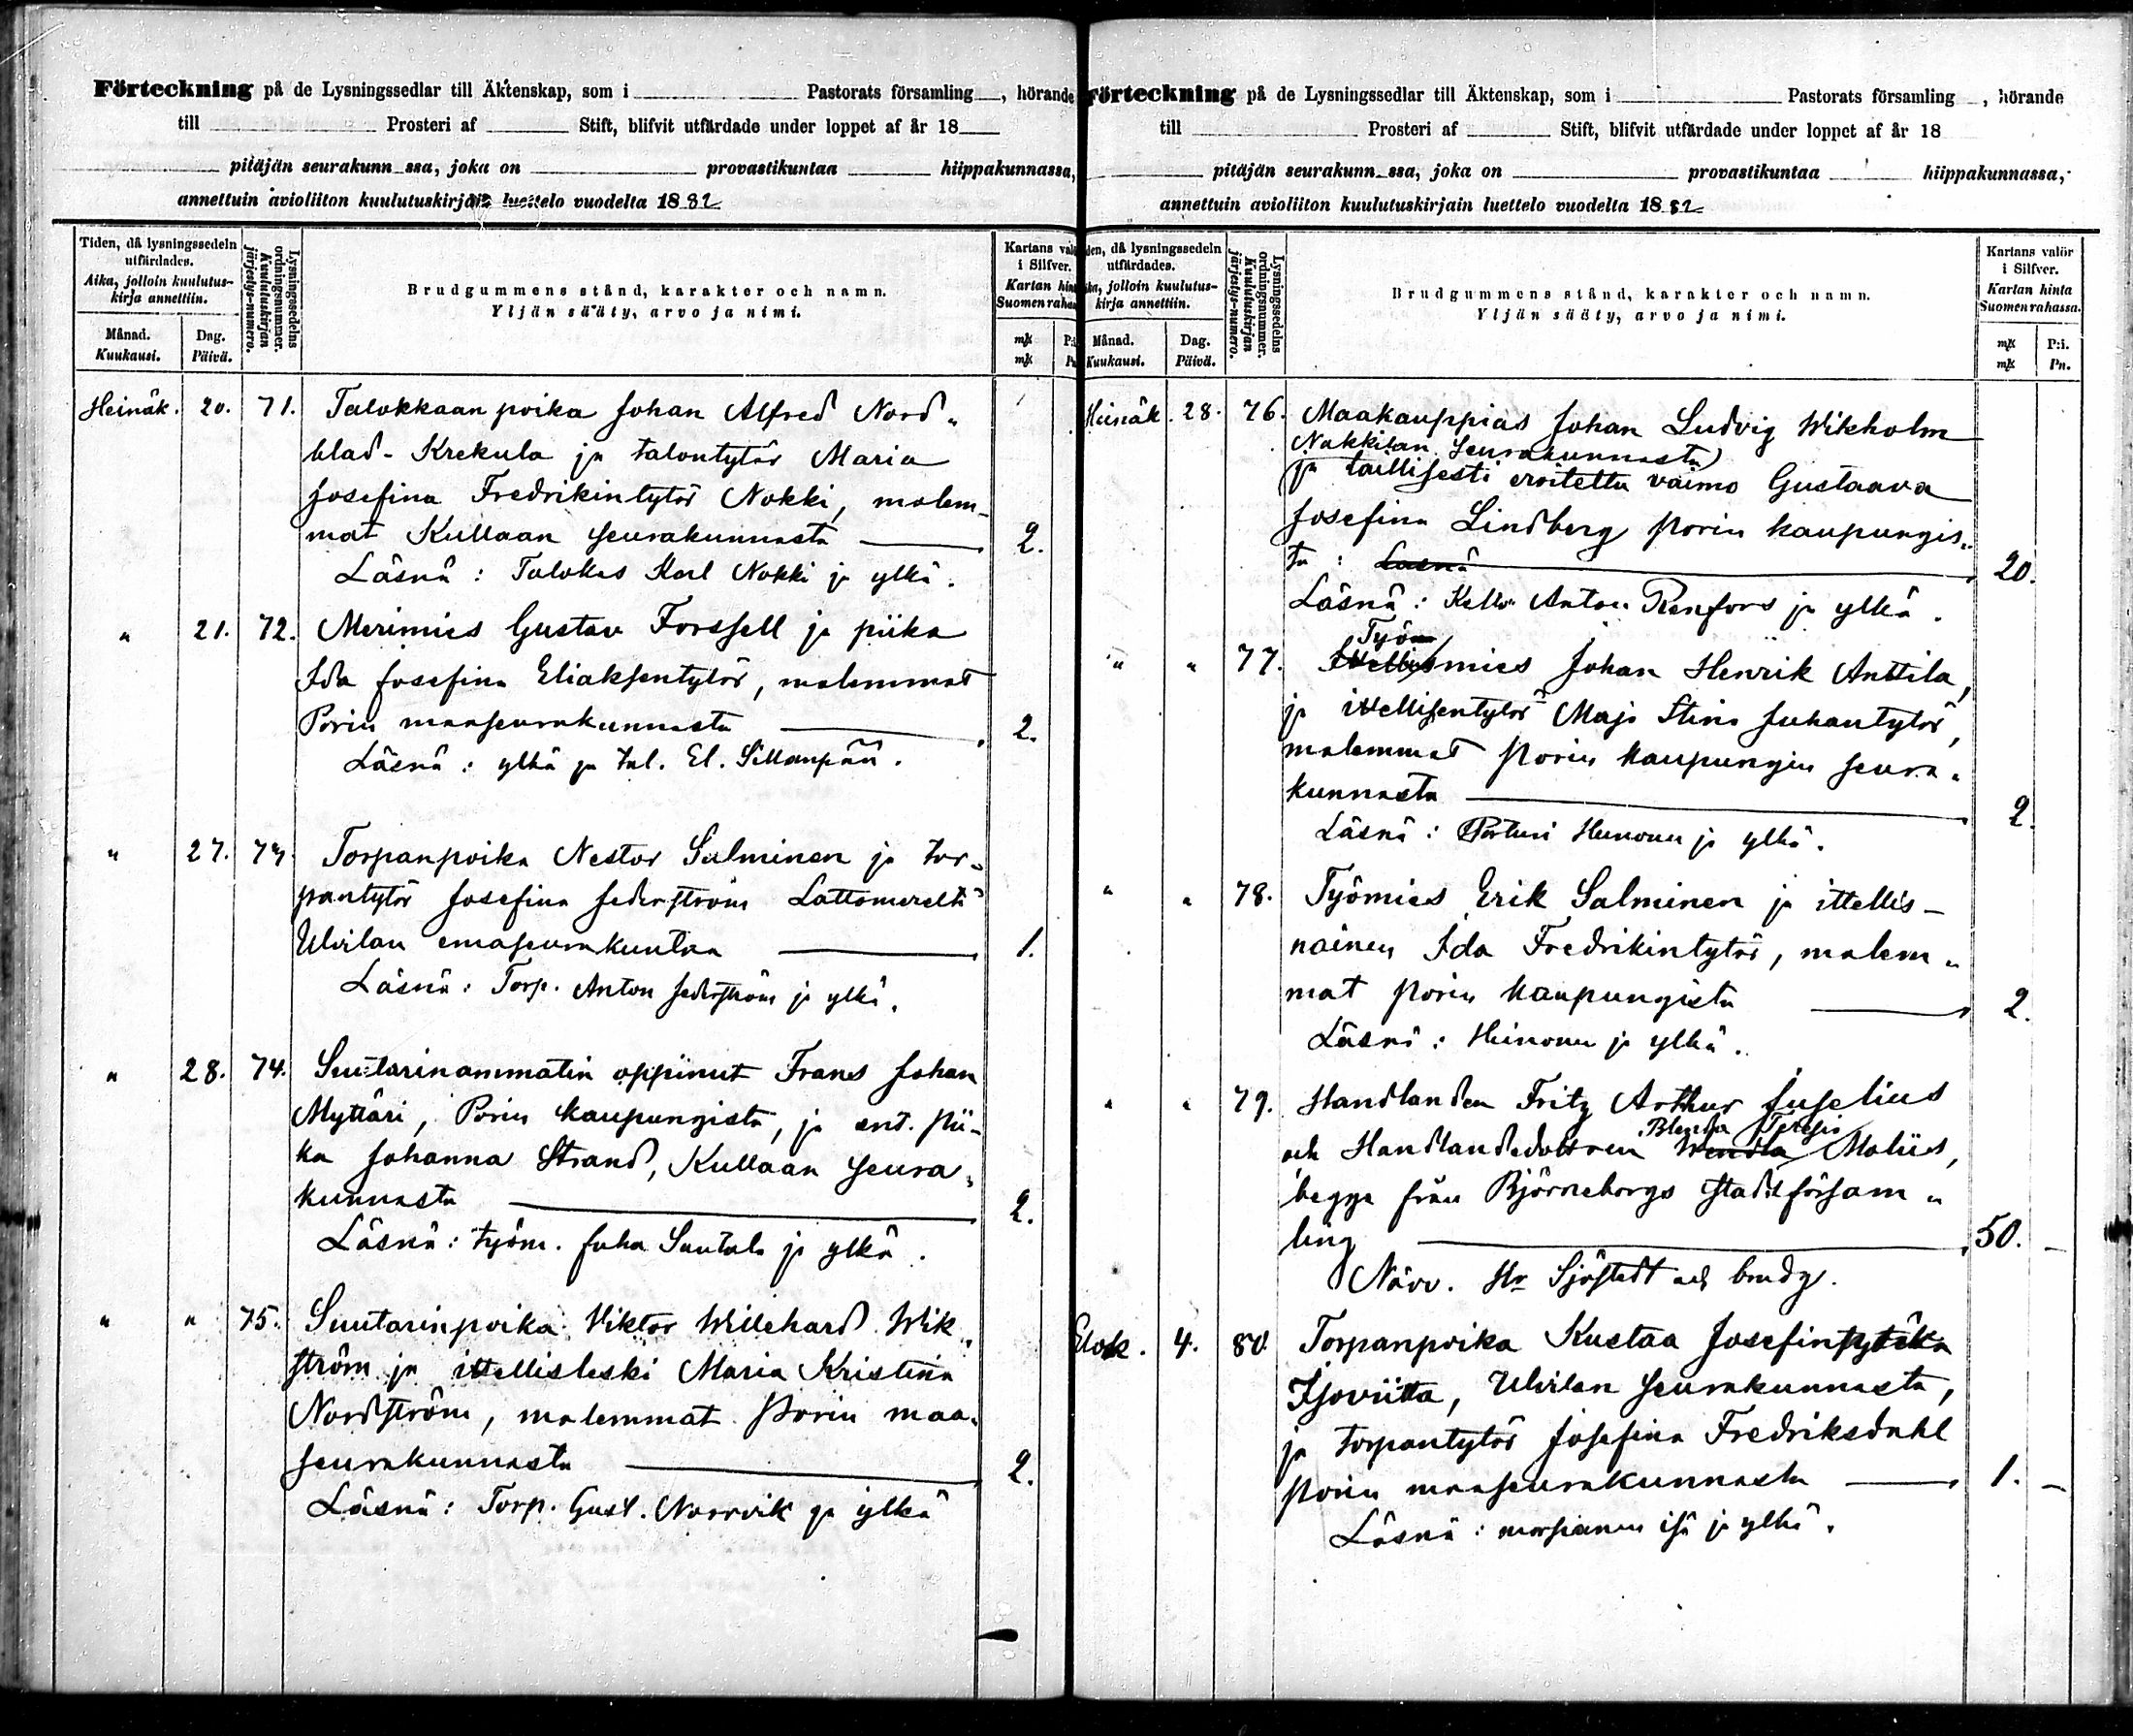 Förteckning på de Lysningssedlar till Äktenskap, som i Pastorats församling , hörande
till Prosteri af Stift, blifvit utfärdade under loppet af år 18
pitäjän seurakunn ssa, joka on provastikuntaa hiippakunnassa,
annettuin avioliiton kuulutuskirjain luettelo vuodelta 1882
Tiden, då lysningssedeln
utfärdades.
Aika, jolloin kuulutus-
kirja annettiin.
Månad.
Kuukausi.
Dag.
Päivä.
Lysningssedelns
ordningsnummer.
Kuulutuskirjan
järjestys-numero.
Brudgummens stånd, karakter och namn.
Yljän sääty, arvo ja nimi.
Kartans
i Silfver.
Kartan
Suomen
mk
mk
Heinäk. 20. 71. Talokkaan poika Johan Alfred Nord-
blad-Krekula ja talontytär Maria
Josefina Fredrikintytär Nokki, molem-
mat Kullaan seurakunnasta 2.
Läsnä: Talokas Karl Nokki ja ylkä.
" 21. 72. Merimies Gustav Forssell ja piika
Ida Josefina Eliaksentytär, molemmat
Porin maaseurakunnasta 2.
Läsnä: ylkä ja tal. El. Sillanpää.
" 27. 73 Torpanpoika Nestor Salminen ja tor-
pantytär Josefina Sederström Lattomerelta
Ulvilan emäseurakuntaa 1.
Läsnä: Torp. Anton Sederström ja ylkä.
" 28. 74. Suutarinammatin oppinut Frans Johan
Myttäri, Porin kaupungista, ja ent. pii-
ka Johanna Strand, Kullaan seura-
kunnasta 2.
Läsnä: työm. Juha Santala ja ylkä.
" " 75. Suutarinpoika Viktor Willehard Wik-
ström ja ittellisleski Maria Kristina
Nordström, molemmat Porin maa-
seurakunnasta 2.
Läsnä: Torp. Gust. Norrvik ja ylkä
Förteckning på de Lysningssedlar till Äktenskap, som i Pastorats församling , hörande
till Prosteri af Stift, blifvit utfärdade under loppet af år 18
pitäjän seurakunn ssa, joka on provastikuntaa hiippakunnassa,
annettuin avioliiton kuulutuskirjain luettelo vuodelta 1882
då lysningssedeln
utfärdades.
jolloin kuulutus-
kirja annettiin.
Månad.
Kuukausi.
Dag.
Päivä.
Lysningssedelns
ordningsnummer.
Kuulutuskirjan
järjestys-numero.
Brudgummens stånd, karakter och namn.
Yljän sääty, arvo ja nimi.
Kartans valör
i Silfver.
Kartan hinta
Suomen rahassa.
mk P:i.
mk Pn.
Heinäk. 28. 76. Maakauppias Johan Ludvig Wikholm
Nakkilan seurakunnasta
ja laillisesti eroitettu vaimo Gustaava
Josefina Lindberg Porin kaupungis-
ta: Läsnä 20.
Läsnä: Anton Renfors ja ylkä.
Työ
" " 77. Ittellismies Johan Henrik Anttila,
ja ittellisentytär Maja Stina Juhantytär,
molemmat Porin kaupungin seura-
kunnasta 2.
Läsnä: Porturi Heinonen ja ylkä.
" " 78. Työmies Erik Salminen ja ittellis-
nainen Ida Fredrikintytär, molem-
mat Porin kaupungista 2.
Läsnä: Heinonen ja ylkä.
" " 79. Handlanden Fritz Arthur Juselius
Blenda Teresia
och Handlandedottren Wendla Moliis,
begge från Björneborgs stadsförsam-
ling 50. –
Närv. Hr Sjöstedt och brudg.
Elok. 4. 80. Torpanpoika Kustaa Josefinpoika
Isoviitta, Ulvilan seurakunnasta,
ja torpantytär Josefina Fredriksdahl
Porin maaseurakunnasta 1. –
Läsnä: morsiamen isä ja ylkä.